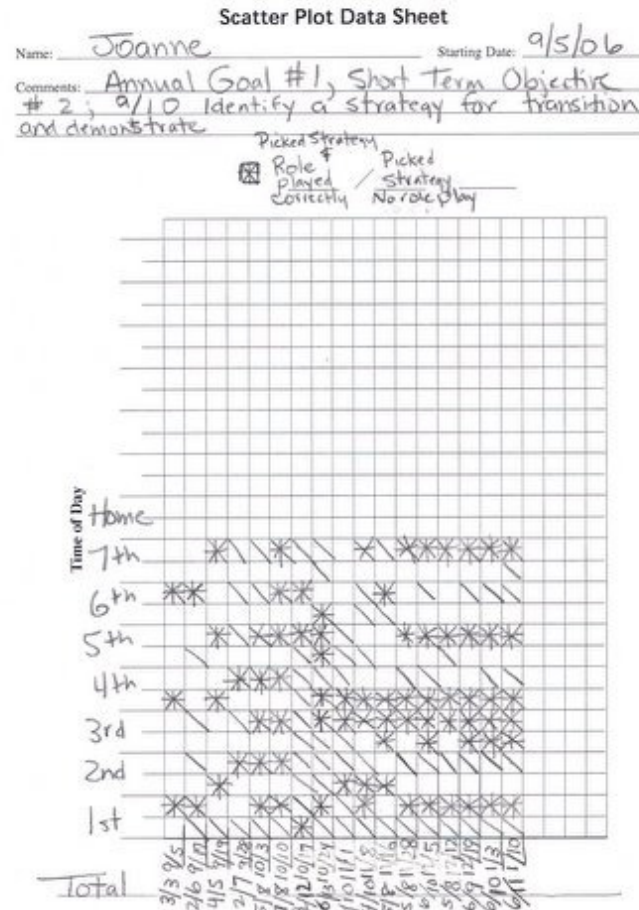 Scatter Plot Data Sheet
Name: Joanne Starting Date: 9/5/06
Comments: Annual Goal #1, Short Term Objective
# 2; 9/10 Identify a strategy for transition
and demonstrate
Picked Strategy
& Role played correctly
/ Picked Strategy No role play
Time of Day
Home
7th
6th
5th
4th
3rd
2nd
1st
9/5
9/19
10/3
10/10
10/17
10/24
11/1
12/12
12/19
1/3
1/10
Total
3/3
2/6
4/5
2/7